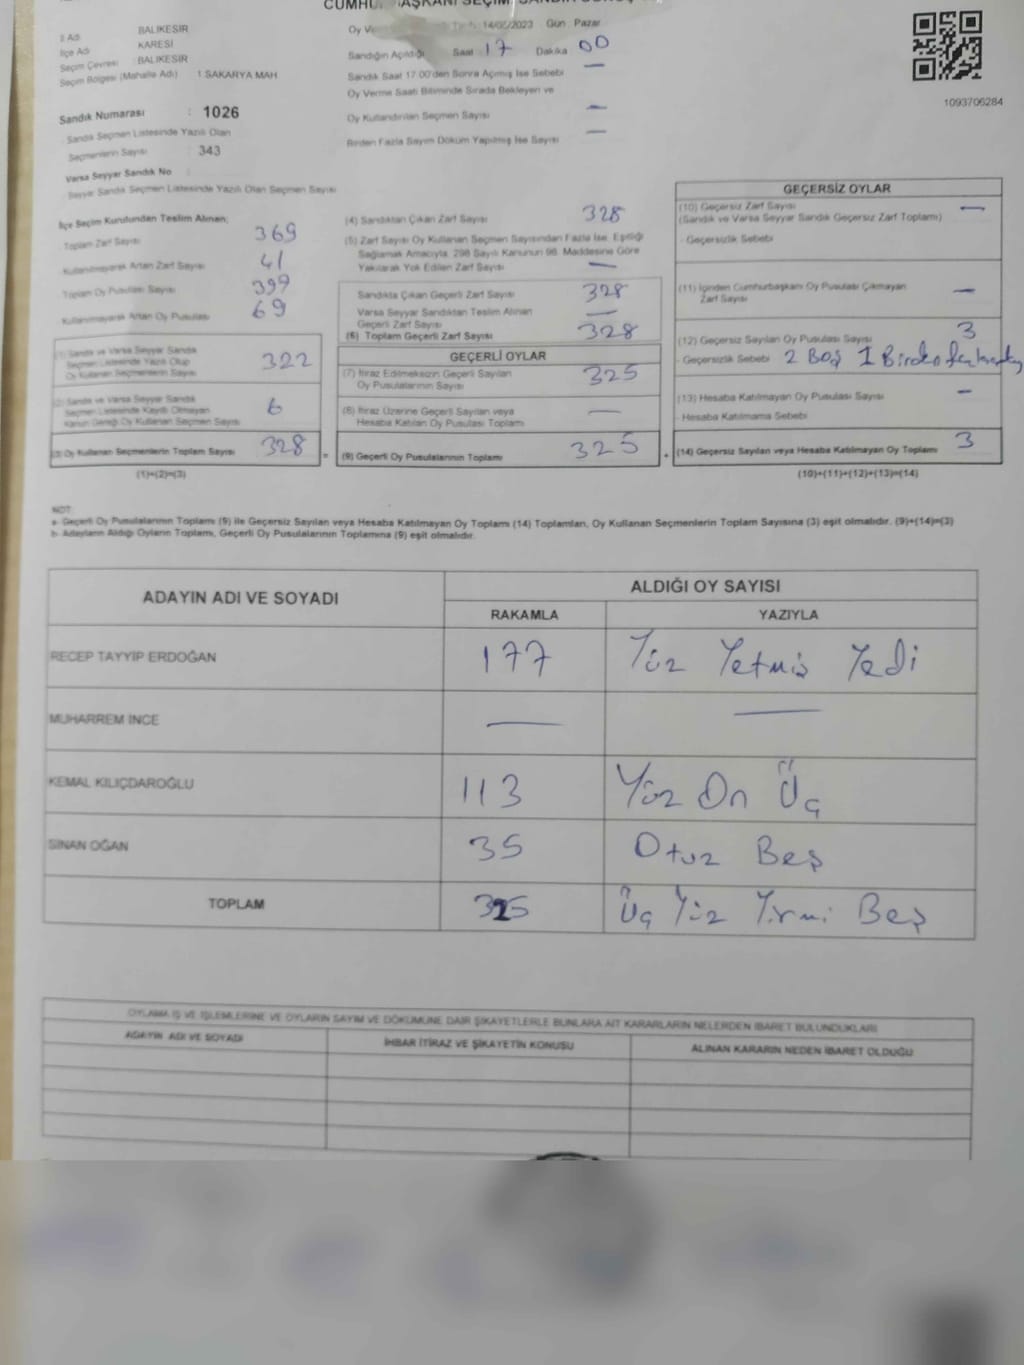 CUMHU AŞKANI SEÇİM SANDIK SONUÇ
İl Adı BALIKESİR
İlçe Adı KARESİ
Seçim Çevresi : BALIKESİR
Seçim Bölgesi (Mahalle Adı) 1.SAKARYA MAH
Sandık Numarası : 1026
Sandık Seçmen Listesinde Yazılı Olan
Seçmenlerin Sayısı : 343
Varsa Seyyar Sandık No :
Seyyar Sandık Seçmen Listesinde Yazılı Olan Seçmen Sayısı
Oy Ve 14/05/2023 Gün : Pazar
Sandığın Açıldığı Saat 17 Dakika 00
Sandık Saat 17.00'den Sonra Açılmış İse Sebebi —
Oy Verme Saati Bitiminde Sırada Bekleyen ve
Oy Kullandırılan Seçmen Sayısı —
Birden Fazla Sayım Döküm Yapılmış İse Sayısı —
1093706284
İlçe Seçim Kurulundan Teslim Alınan;
Toplam Zarf Sayısı 369
Kullanılmayarak Artan Zarf Sayısı 41
Toplam Oy Pusulası Sayısı 399
Kullanılmayarak Artan Oy Pusulası 69
(1) Sandık ve Varsa Seyyar Sandık
Seçmen Listesinde Yazılı Olup
Oy Kullanan Seçmenlerin Sayısı 322
(2) Sandık ve Varsa Seyyar Sandık
Seçmen Listesinde Kayıtlı Olmayan
Kanun Gereği Oy Kullanan Seçmen Sayısı 6
(3) Oy Kullanan Seçmenlerin Toplam Sayısı 328 =
(1)+(2)=(3)
(4) Sandıktan Çıkan Zarf Sayısı 328
(5) Zarf Sayısı Oy Kullanan Seçmen Sayısından Fazla İse, Eşitliği
Sağlamak Amacıyla, 298 Sayılı Kanunun 98. Maddesine Göre
Yakılarak Yok Edilen Zarf Sayısı —
Sandıkta Çıkan Geçerli Zarf Sayısı 328
Varsa Seyyar Sandıktan Teslim Alınan
Geçerli Zarf Sayısı —
(6) Toplam Geçerli Zarf Sayısı 328
GEÇERLİ OYLAR
(7) İtiraz Edilmeksizin Geçerli Sayılan
Oy Pusulalarının Sayısı 325
(8) İtiraz Üzerine Geçerli Sayılan veya
Hesaba Katılan Oy Pusulası Toplamı —
(9) Geçerli Oy Pusulalarının Toplamı 325 +
GEÇERSİZ OYLAR
(10) Geçersiz Zarf Sayısı —
(Sandık ve Varsa Seyyar Sandık Geçersiz Zarf Toplamı)
- Geçersizlik Sebebi
(11) İçinden Cumhurbaşkanı Oy Pusulası Çıkmayan
Zarf Sayısı —
(12) Geçersiz Sayılan Oy Pusulası Sayısı 3
- Geçersizlik Sebebi 2 Boş 1 Birden
(13) Hesaba Katılmayan Oy Pusulası Sayısı —
- Hesaba Katılmama Sebebi
(14) Geçersiz Sayılan veya Hesaba Katılmayan Oy Toplamı 3
(10)+(11)+(12)+(13)=(14)
NOT:
a- Geçerli Oy Pusulalarının Toplamı (9) ile Geçersiz Sayılan veya Hesaba Katılmayan Oy Toplamı (14) Toplamları, Oy Kullanan Seçmenlerin Toplam Sayısına (3) eşit olmalıdır. (9)+(14)=(3)
b- Adayların Aldığı Oyların Toplamı, Geçerli Oy Pusulalarının Toplamına (9) eşit olmalıdır.
ADAYIN ADI VE SOYADI ALDIĞI OY SAYISI
RAKAMLA YAZIYLA
RECEP TAYYİP ERDOĞAN 177 Yüz Yetmiş Yedi
MUHARREM İNCE — —
KEMAL KILIÇDAROĞLU 113 Yüz On Üç
SİNAN OĞAN 35 Otuz Beş
TOPLAM 325 Üç Yüz Yirmi Beş
OYLAMA İŞ VE İŞLEMLERİNE VE OYLARIN SAYIM VE DÖKÜMÜNE DAİR ŞİKAYETLERLE BUNLARA AİT KARARLARIN NELERDEN İBARET BULUNDUKLARI
ADAYIN ADI VE SOYADI İHBAR İTİRAZ VE ŞİKAYETİN KONUSU ALINAN KARARIN NEDEN İBARET OLDUĞU